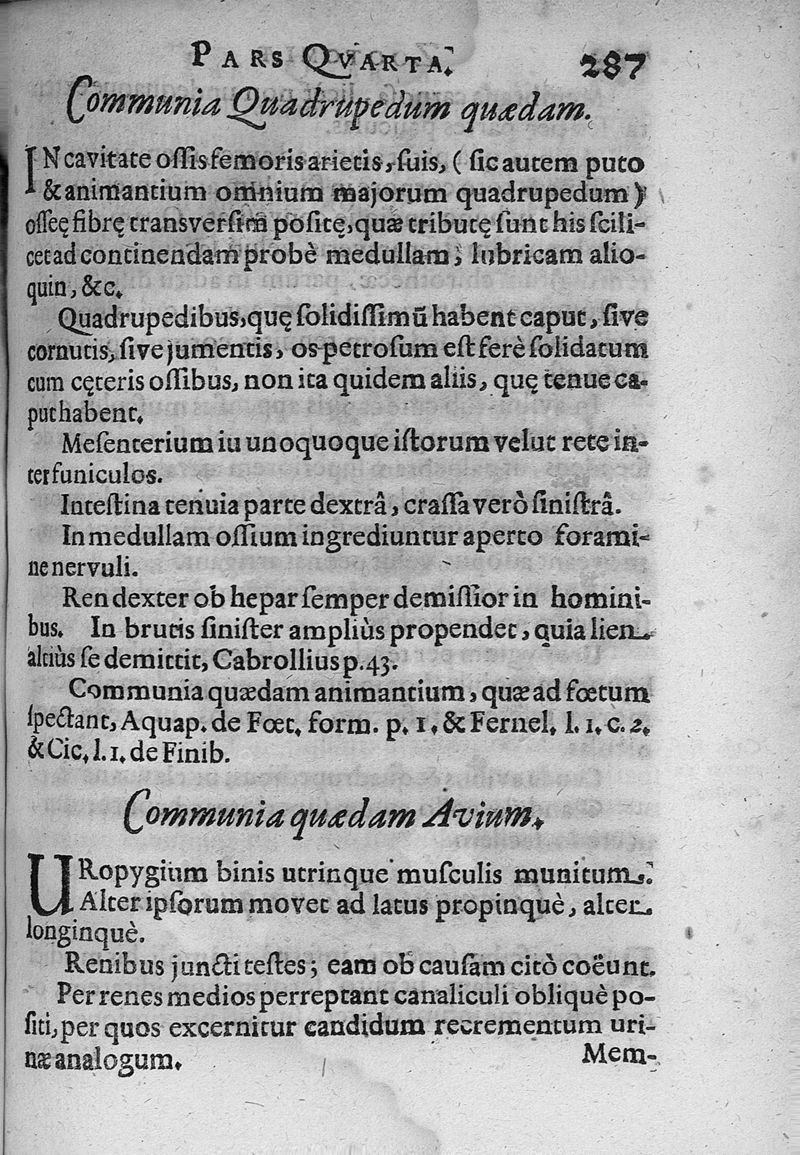 PARS QVARTA. 287
Communia Quadrupedum quædam.
IN cavitate ossis femoris arietis, suis, ( sic autem puto
& animantium omnium majorum quadrupedum )
osseę fibrę transversim positę, quæ tributę sunt his scili-
cet ad continendam probè medullam; lubricam alio-
quin, &c.
Quadrupedibus, quę solidissimū habent caput, sive
cornutis, sive jumentis, os petrosum est ferè solidatum
cum cęteris ossibus, non ita quidem aliis, quę tenue ca-
put habent.
Mesenterium iu unoquoque istorum velut rete in-
ter funiculos.
Intestina tenuia parte dextrâ, crassa verò sinistrâ.
In medullam ossium ingrediuntur aperto forami-
ne nervuli.
Ren dexter ob hepar semper demissior in homini-
bus. In brutis sinister ampliùs propendet, quia lien
altiùs se demittit, Cabrollius p. 43.
Communia quædam animantium, quæ ad fœtum
spectant, Aquap. de Fœt. form. p. 1. & Fernel. l. 1. c. 2.
& Cic. l. 1. de Finib.
Communia quædam Avium.
URopygium binis utrinque musculis munitum.
Alter ipsorum movet ad latus propinquè, alter
longinquè.
Renibus juncti testes; eam ob causam citò coëunt.
Per renes medios perreptant canaliculi obliquè po-
siti, per quos excernitur candidum recrementum uri-
næ analogum.
Mem-